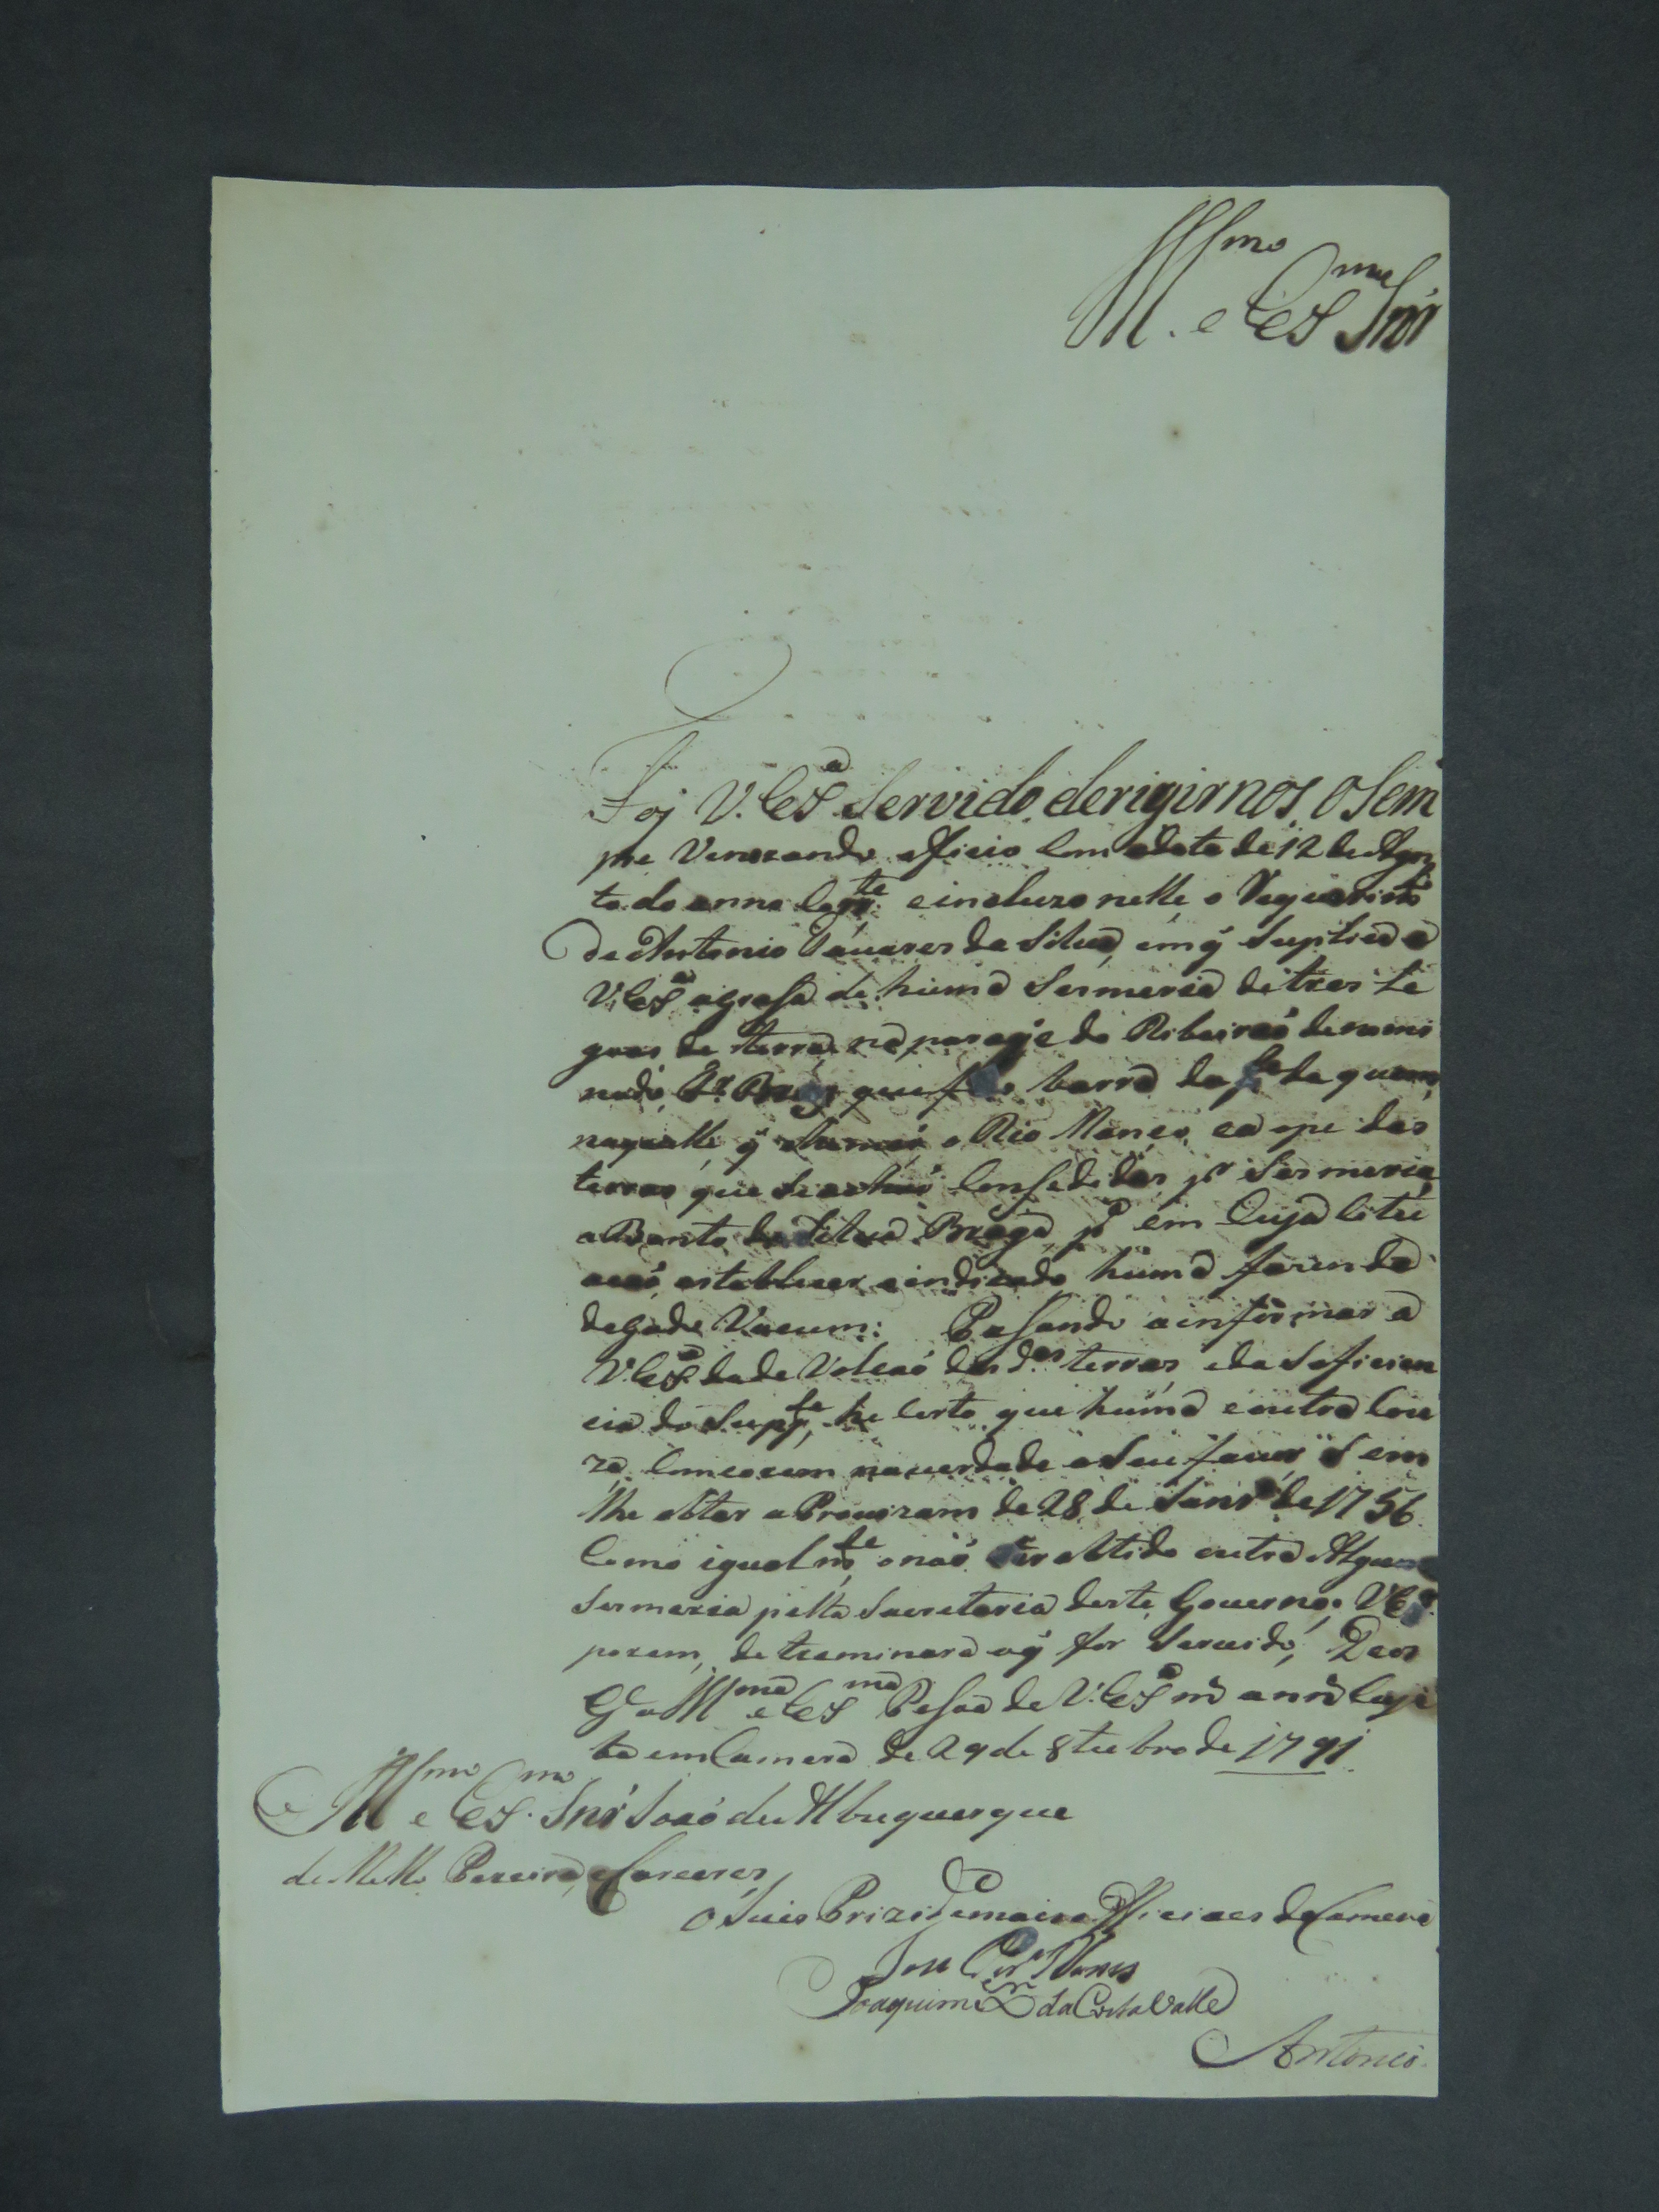 Illmo
e Exmo Snr
Foj V. Exa Servido, derigirnos, o Sem
pre Venerando officio Com adata de 12 de Agos
to do anno Corrte. e incluzo nelle o Requerimto
de Antonio Tavares da Silva, em q̃ Suplica a
V. Exa agrasa de huma Sesmeria de tres Le
goas de terra na parage do Ribeiraó denomi
nado barra da
naquelle q̃ chamaó o Rio Manço, e ao pe das
terras que Se achaó Consedidas pr Sesmeria
a Bento da Silva Braga pa em Cuja Citu
acaó, estabelecer o indicado huma fazenda
de gado Vacum: Pasando a informar a
V. Exa da deVolcaó das das terras, e da Soficien
cia do Suppte, he Certo que huma e outra Cou
za Concorem naverdade aSeu favor Sem
lhe obstar a Provizam de 28 de Janro de 1756
Como igualmte, o naó ter obtido outra Alguma
Sesmeria pella Secretaria deste Governo: V. Exa
porem, determinara oq̃ for Servido, Deos
Ge a Illma e Exma Pesoa de V. Exa ms anns Cuja
ba em Camera de 29 de 8tubro de 1791
Illmo e Exmo Snr Joaó de Albuquerque
de Mello Pereira, e Carceres
O Juis Prizide emais Officiaes da Camera
Joze Nunes
Joaquim da Costa Valle
Antonio